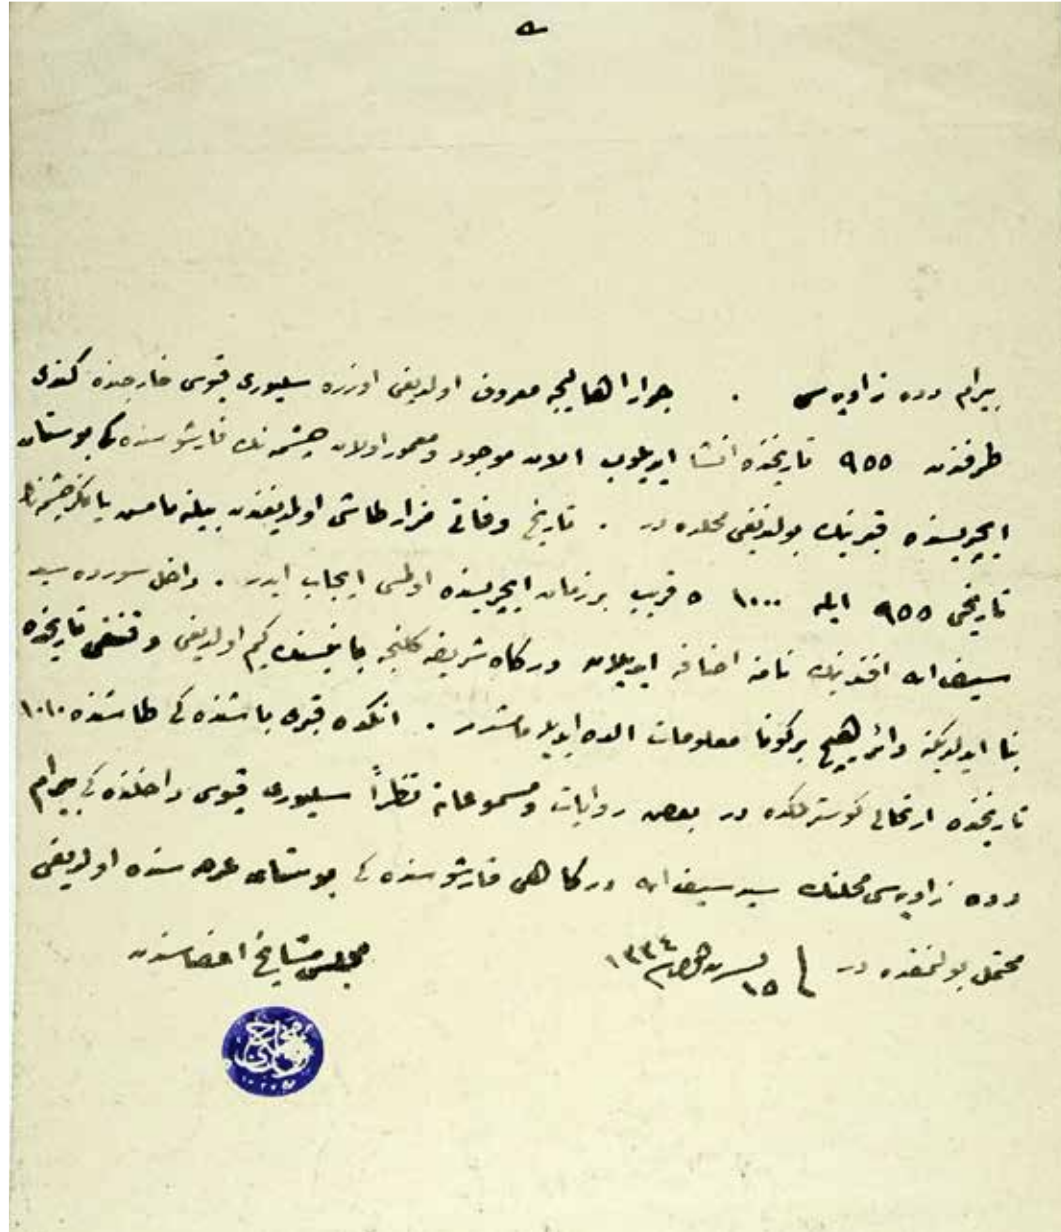 بيرام دده زاويه‌سى . جوار اهاليجه معروف اولديغى اوزره سليورى قپوسى خارجنده كندى
طرفندن ٩٥٥ تاريخنده انشا ايديلوب الان موجود ومعمور اولان چشمه‌نك قارشوسنده‌كى بوستان
ايچريسنده قبرينك بولنديغى محلده در . تاريخ وفاتى مزار طاشى اولمديغندن بيلنه‌مامش يالكز چشمه‌نك
تاريخى ٩٥٥ ايله ١٠٠٠ ه قريب بر زمان ايچريسنده اولمسى ايجاب ايدر . داخل سورده سيد
سيف الله افندينك نامنه اضافه ايديلان دركاه شريفه كلنجه بانيسنك كيم اولديغى وقنغى تاريخده
بنا ايدلديكنه دائر هيچ بركونا معلومات الده ايديله‌مامشدر . انكده قبرى باشنده‌كى طاشنده ١٠١٠
تاريخنده ارتحالى كوسترلمكده در بعض روايات ومسموعاته نظراً سليورى قپوسى داخلنده‌كى بيرام
دده زاويه‌سى محلنك سيد سيف الله دركاهى قارشوسنده‌كى بوستان عرصه‌سنده اولديغى
محتمل بولنمقده در ١٥ ١٣٣٤
مجلس مشايخ اعضاسندن